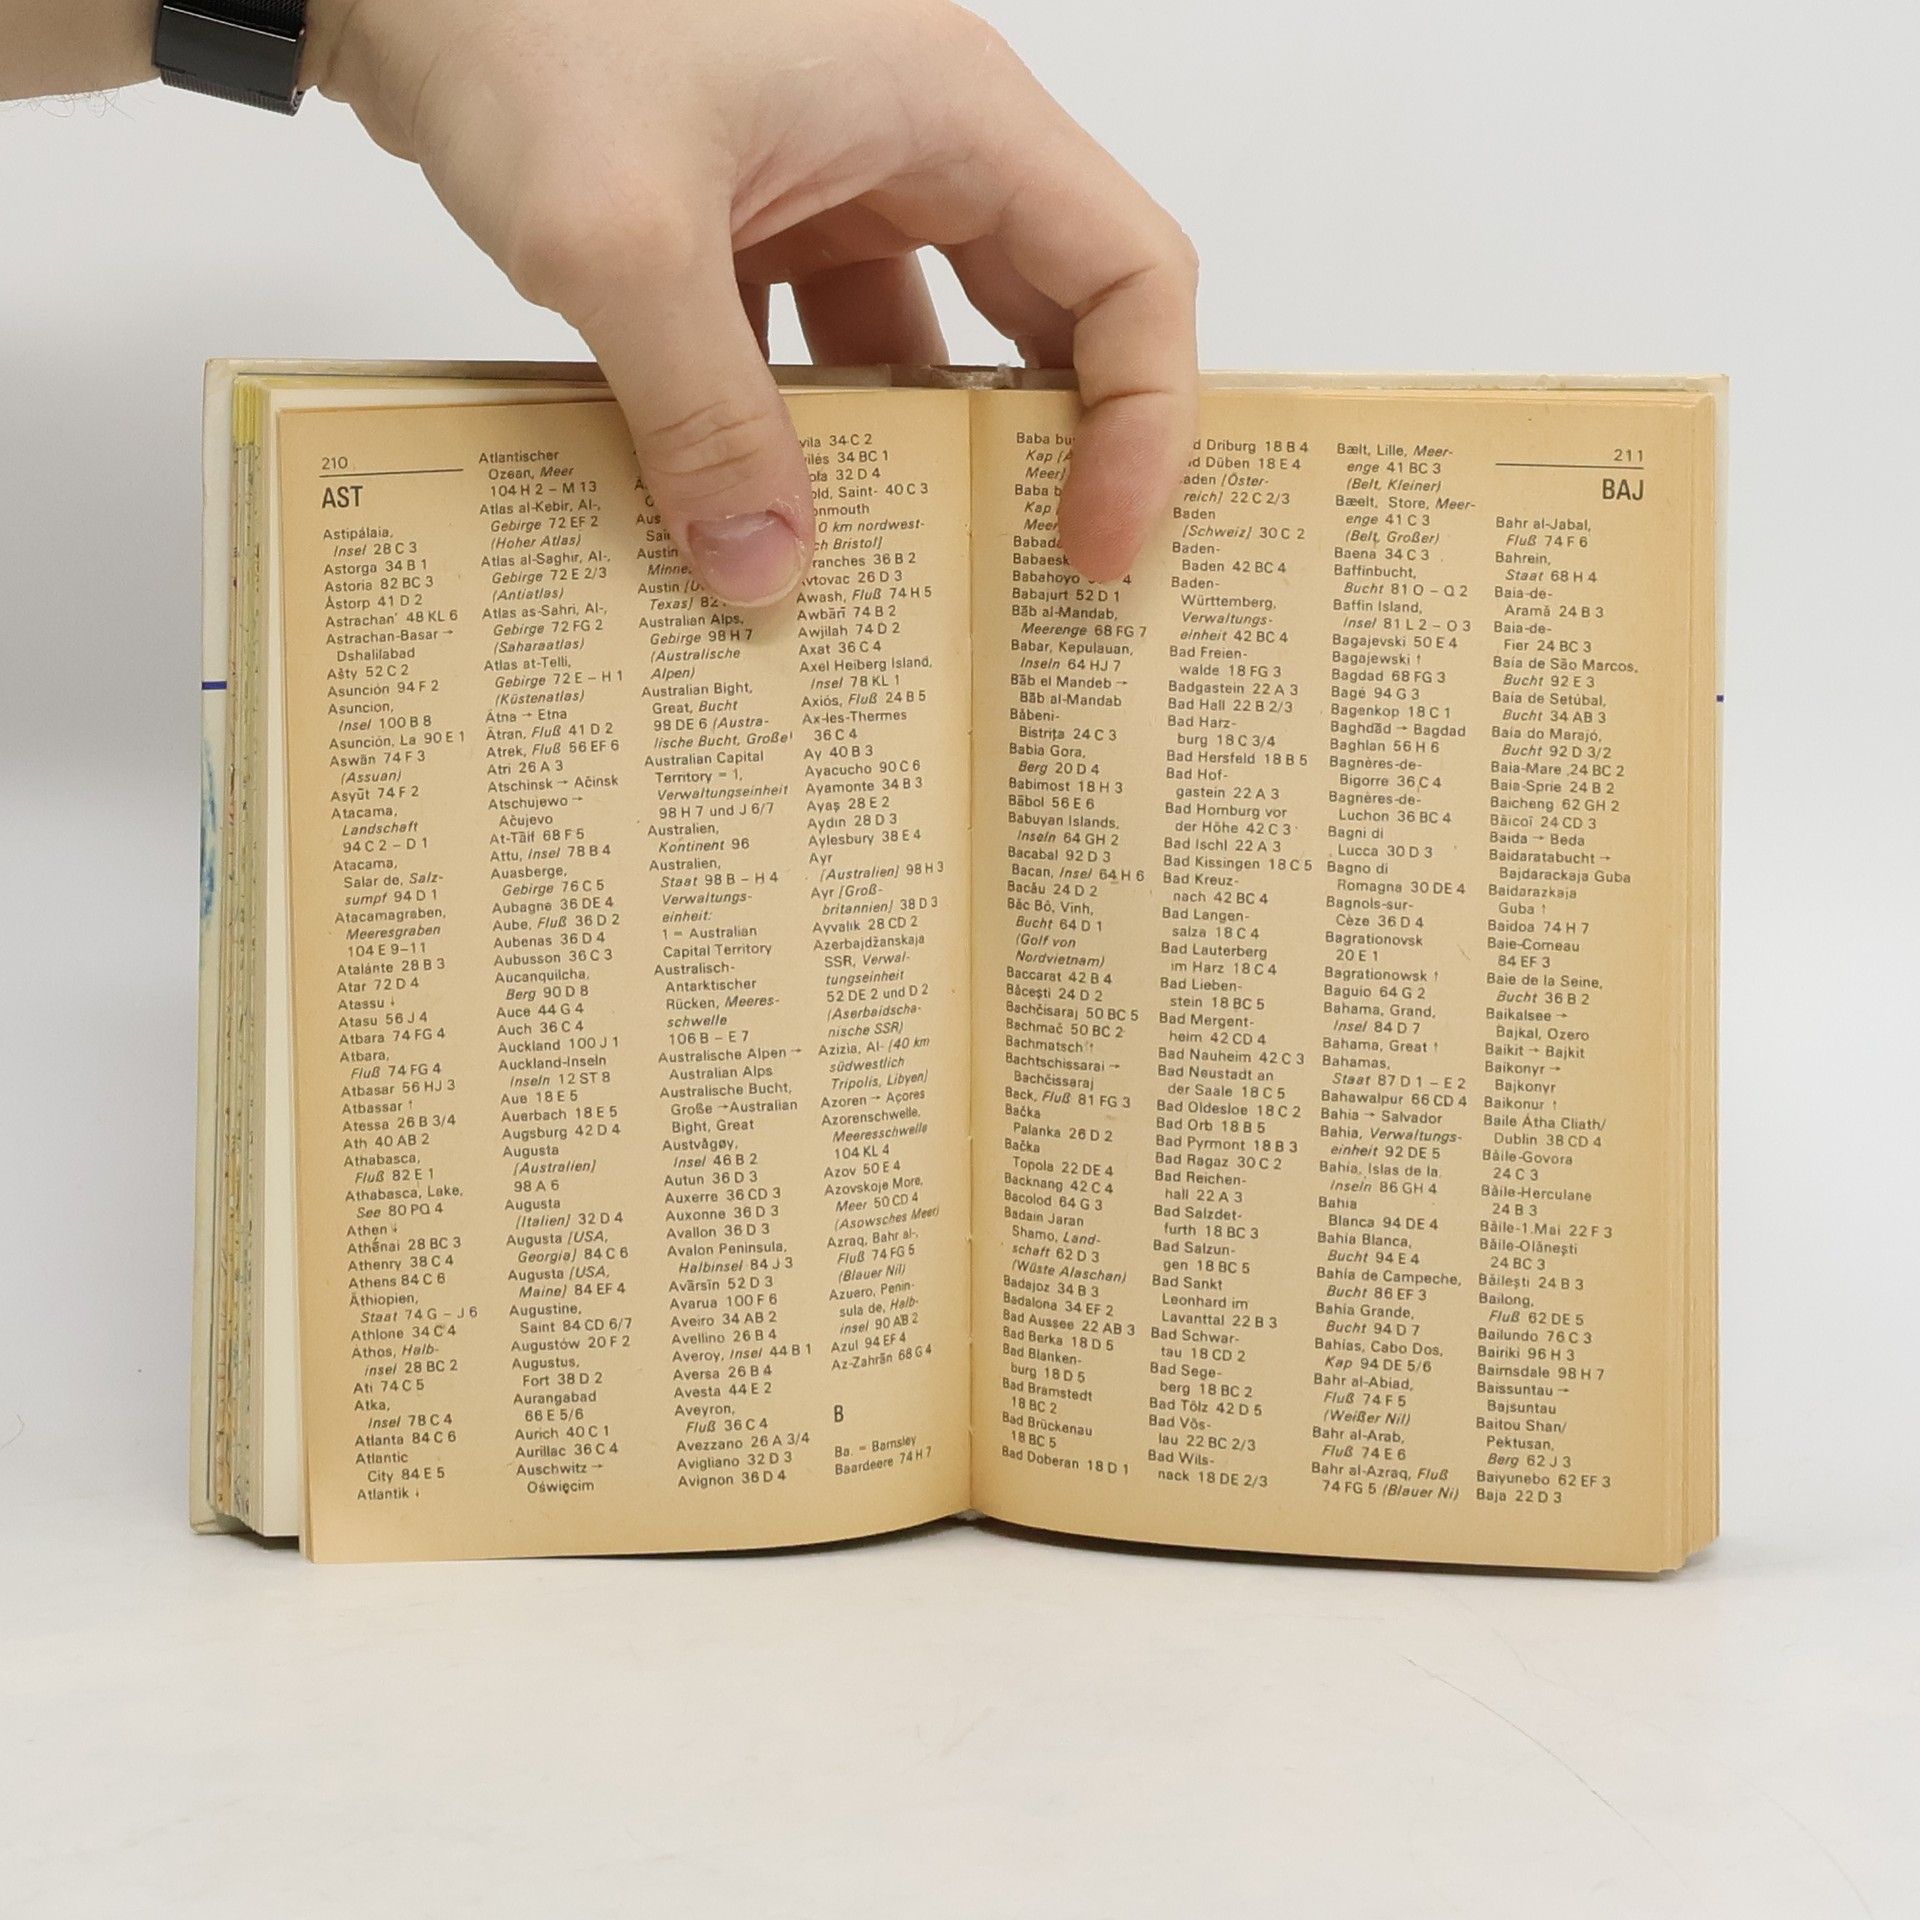 210
AST
Astipálaia,
Insel 28 C 3
Astorga 34 B 1
Astoria 82 BC 3
Åstorp 41 D 2
Astrachan' 48 KL 6
Astrachan-Basar →
Dshalilabad
Ašty 52 C 2
Asunción 94 F 2
Asuncion,
Insel 100 B 8
Asunción, La 90 E 1
Aswân 74 F 3
(Assuan)
Asyūt 74 F 2
Atacama,
Landschaft
94 C 2 – D 1
Atacama,
Salar de, Salz-
sumpf 94 D 1
Atacamagraben,
Meeresgraben
104 E 9–11
Atalánte 28 B 3
Atar 72 D 4
Atassu ↓
Atasu 56 J 4
Atbara 74 FG 4
Atbara,
Fluß 74 FG 4
Atbasar 56 HJ 3
Atbassar ↑
Atessa 26 B 3/4
Ath 40 AB 2
Athabasca,
Fluß 82 E 1
Athabasca, Lake,
See 80 PQ 4
Athen ↓
Athēnai 28 BC 3
Athenry 38 C 4
Athens 84 C 6
Äthiopien,
Staat 74 G – J 6
Athlone 34 C 4
Athos, Halb-
insel 28 BC 2
Ati 74 C 5
Atka,
Insel 78 C 4
Atlanta 84 C 6
Atlantic
City 84 E 5
Atlantik ↓
Atlantischer
Ozean, Meer
104 H 2 – M 13
Atlas al-Kebir, Al-,
Gebirge 72 EF 2
(Hoher Atlas)
Atlas al-Saghir, Al-,
Gebirge 72 E 2/3
(Antiatlas)
Atlas as-Sahri, Al-,
Gebirge 72 FG 2
(Saharaatlas)
Atlas at-Telli,
Gebirge 72 E – H 1
(Küstenatlas)
Ätna → Etna
Ätran, Fluß 41 D 2
Atrek, Fluß 56 EF 6
Atri 26 A 3
Atschinsk → Ačinsk
Atschujewo →
Ačujevo
At-Tāif 68 F 5
Attu, Insel 78 B 4
Auasberge,
Gebirge 76 C 5
Aubagne 36 DE 4
Aube, Fluß 36 D 2
Aubenas 36 D 4
Aubusson 36 C 3
Aucanquilcha,
Berg 90 D 8
Auce 44 G 4
Auch 36 C 4
Auckland 100 J 1
Auckland-Inseln
Inseln 12 ST 8
Aue 18 E 5
Auerbach 18 E 5
Augsburg 42 D 4
Augusta
[Australien]
98 A 6
Augusta
[Italien] 32 D 4
Augusta [USA,
Georgia] 84 C 6
Augusta [USA,
Maine] 84 EF 4
Augustine,
Saint 84 CD 6/7
Augustów 20 F 2
Augustus,
Fort 38 D 2
Aurangabad
66 E 5/6
Aurich 40 C 1
Aurillac 36 C 4
Auschwitz →
Oświęcim
Aus
Sai
Austin
Minne
Austin [U
Texas] 82
Australian Alps,
Gebirge 98 H 7
(Australische
Alpen)
Australian Bight,
Great, Bucht
98 DE 6 (Austra-
lische Bucht, Große)
Australian Capital
Territory = 1,
Verwaltungseinheit
98 H 7 und J 6/7
Australien,
Kontinent 96
Australien,
Staat 98 B – H 4
Verwaltungs-
einheit:
1 = Australian
Capital Territory
Australisch-
Antarktischer
Rücken, Meeres-
schwelle
106 B – E 7
Australische Alpen →
Australian Alps
Australische Bucht,
Große → Australian
Bight, Great
Austvågøy,
Insel 46 B 2
Autun 36 D 3
Auxerre 36 CD 3
Auxonne 36 D 3
Avallon 36 D 3
Avalon Peninsula,
Halbinsel 84 J 3
Avārsin 52 D 3
Avarua 100 F 6
Aveiro 34 AB 2
Avellino 26 B 4
Averoy, Insel 44 B 1
Aversa 26 B 4
Avesta 44 E 2
Aveyron,
Fluß 36 C 4
Avezzano 26 A 3/4
Avigliano 32 D 3
Avignon 36 D 4
vila 34 C 2
vilés 34 BC 1
ola 32 D 4
old, Saint- 40 C 3
onmouth
0 km nordwest-
ch Bristol]
ranches 36 B 2
vtovac 26 D 3
Awash, Fluß 74 H 5
Awbārī 74 B 2
Awjilah 74 D 2
Axat 36 C 4
Axel Heiberg Island,
Insel 78 KL 1
Axiós, Fluß 24 B 5
Ax-les-Thermes
36 C 4
Ay 40 B 3
Ayacucho 90 C 6
Ayamonte 34 B 3
Ayaş 28 E 2
Aydın 28 D 3
Aylesbury 38 E 4
Ayr
[Australien] 98 H 3
Ayr [Groß-
britannien] 38 D 3
Ayvalık 28 CD 2
Azerbajdžanskaja
SSR, Verwal-
tungseinheit
52 DE 2 und D 2
(Aserbaidscha-
nische SSR)
Azizia, Al- [40 km
südwestlich
Tripolis, Libyen]
Azoren → Açores
Azorenschwelle,
Meeresschwelle
104 KL 4
Azov 50 E 4
Azovskoje More,
Meer 50 CD 4
(Asowsches Meer)
Azraq, Bahr al-,
Fluß 74 FG 5
(Blauer Nil)
Azuero, Penin-
sula de, Halb-
insel 90 AB 2
Azul 94 EF 4
Az-Zahrān 68 G 4
B
Ba. = Barnsley
Baardeere 74 H 7
Baba bu
Kap [A
Meer]
Baba b
Kap
Meer
Babada
Babaesk
Babahoyo 4
Babajurt 52 D 1
Bāb al-Mandab,
Meerenge 68 FG 7
Babar, Kepulauan,
Inseln 64 HJ 7
Bāb el Mandeb →
Bāb al-Mandab
Băbeni-
Bistrița 24 C 3
Babia Gora,
Berg 20 D 4
Babimost 18 H 3
Bābol 56 E 6
Babuyan Islands,
Inseln 64 GH 2
Bacabal 92 D 3
Bacan, Insel 64 H 6
Bacău 24 D 2
Băc Bô, Vinh,
Bucht 64 D 1
(Golf von
Nordvietnam)
Baccarat 42 B 4
Băcești 24 D 2
Bachčisaraj 50 BC 5
Bachmač 50 BC 2
Bachmatsch ↑
Bachtschissarai →
Bachčissaraj
Back, Fluß 81 FG 3
Bačka
Palanka 26 D 2
Bačka
Topola 22 DE 4
Backnang 42 C 4
Bacolod 64 G 3
Badain Jaran
Shamo, Land-
schaft 62 D 3
(Wüste Alaschan)
Badajoz 34 B 3
Badalona 34 EF 2
Bad Aussee 22 AB 3
Bad Berka 18 D 5
Bad Blanken-
burg 18 D 5
Bad Bramstedt
18 BC 2
Bad Brückenau
18 BC 5
Bad Doberan 18 D 1
d Driburg 18 B 4
d Düben 18 E 4
aden [Öster-
reich] 22 C 2/3
Baden
[Schweiz] 30 C 2
Baden-
Baden 42 BC 4
Baden-
Württemberg,
Verwaltungs-
einheit 42 BC 4
Bad Freien-
walde 18 FG 3
Badgastein 22 A 3
Bad Hall 22 B 2/3
Bad Harz-
burg 18 C 3/4
Bad Hersfeld 18 B 5
Bad Hof-
gastein 22 A 3
Bad Homburg vor
der Höhe 42 C 3
Bad Ischl 22 A 3
Bad Kissingen 18 C 5
Bad Kreuz-
nach 42 BC 4
Bad Langen-
salza 18 C 4
Bad Lauterberg
im Harz 18 C 4
Bad Lieben-
stein 18 BC 5
Bad Mergent-
heim 42 CD 4
Bad Nauheim 42 C 3
Bad Neustadt an
der Saale 18 C 5
Bad Oldesloe 18 C 2
Bad Orb 18 B 5
Bad Pyrmont 18 B 3
Bad Ragaz 30 C 2
Bad Reichen-
hall 22 A 3
Bad Salzdet-
furth 18 BC 3
Bad Salzun-
gen 18 BC 5
Bad Sankt
Leonhard im
Lavanttal 22 B 3
Bad Schwar-
tau 18 CD 2
Bad Sege-
berg 18 BC 2
Bad Tölz 42 D 5
Bad Vös-
lau 22 BC 2/3
Bad Wils-
nack 18 DE 2/3
Bælt, Lille, Meer-
enge 41 BC 3
(Belt, Kleiner)
Bæelt, Store, Meer-
enge 41 C 3
(Belt, Großer)
Baena 34 C 3
Baffinbucht,
Bucht 81 O – Q 2
Baffin Island,
Insel 81 L 2 – O 3
Bagajevski 50 E 4
Bagajewski ↑
Bagdad 68 FG 3
Bagé 94 G 3
Bagenkop 18 C 1
Baghdād → Bagdad
Baghlan 56 H 6
Bagnères-de-
Bigorre 36 C 4
Bagnères-de-
Luchon 36 BC 4
Bagni di
Lucca 30 D 3
Bagno di
Romagna 30 DE 4
Bagnols-sur-
Cèze 36 D 4
Bagrationovsk
20 E 1
Bagrationowsk ↑
Baguio 64 G 2
Bahama, Grand,
Insel 84 D 7
Bahama, Great ↑
Bahamas,
Staat 87 D 1 – E 2
Bahawalpur 66 CD 4
Bahia → Salvador
Bahia, Verwaltungs-
einheit 92 DE 5
Bahía, Islas de la,
Inseln 86 GH 4
Bahía
Blanca 94 DE 4
Bahía Blanca,
Bucht 94 E 4
Bahía de Campeche,
Bucht 86 EF 3
Bahía Grande,
Bucht 94 D 7
Bahías, Cabo Dos,
Kap 94 DE 5/6
Bahr al-Abiad,
Fluß 74 F 5
(Weißer Nil)
Bahr al-Arab,
Fluß 74 E 6
Bahr al-Azraq, Fluß
74 FG 5 (Blauer Ni)
211
BAJ
Bahr al-Jabal,
Fluß 74 F 6
Bahrein,
Staat 68 H 4
Baia-de-
Aramă 24 B 3
Baia-de-
Fier 24 BC 3
Baía de São Marcos,
Bucht 92 E 3
Baía de Setúbal,
Bucht 34 AB 3
Baía do Marajó,
Bucht 92 D 3/2
Baia-Mare 24 BC 2
Baia-Sprie 24 B 2
Baicheng 62 GH 2
Băicoi 24 CD 3
Baida → Beda
Baidaratabucht →
Bajdarackaja Guba
Baidarazkaja
Guba ↑
Baidoa 74 H 7
Baie-Comeau
84 EF 3
Baie de la Seine,
Bucht 36 B 2
Baikalsee →
Bajkal, Ozero
Baikit → Bajkit
Baikonyr →
Bajkonyr
Baikonur ↑
Baile Átha Cliath/
Dublin 38 CD 4
Băile-Govora
24 C 3
Băile-Herculane
24 B 3
Băile-1.Mai 22 F 3
Băile-Olănești
24 BC 3
Băilești 24 B 3
Bailong,
Fluß 62 DE 5
Bailundo 76 C 3
Bairiki 96 H 3
Bairnsdale 98 H 7
Baissuntau →
Bajsuntau
Baitou Shan/
Pektusan,
Berg 62 J 3
Baiyunebo 62 EF 3
Baja 22 D 3